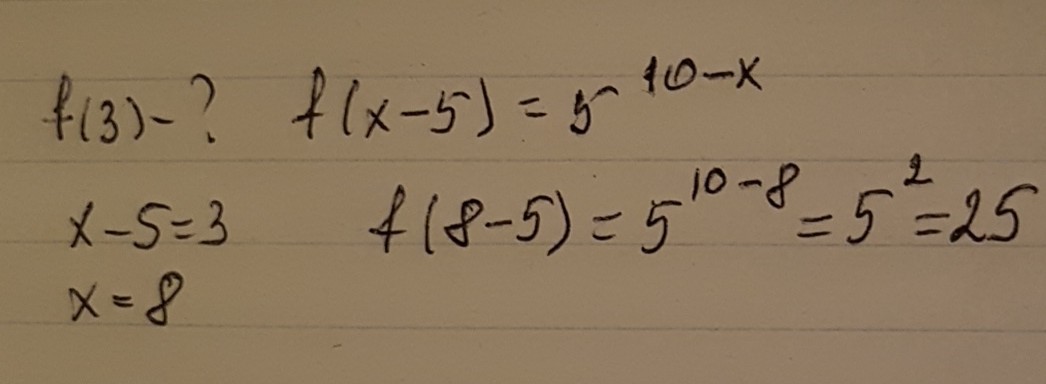 f(3)-? f(x-5)=5^{10-x}
x-5=3 f(8-5)=5^{10-8}=5^2=25
x=8